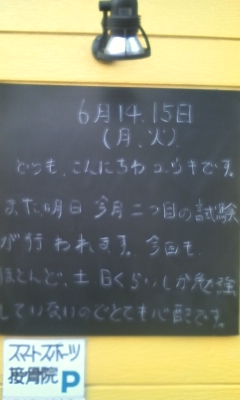 6月14.15日
(月、火)
どうも、こんにちわユウキです。
また明日 今月二つ目の試験
が行われます。今回も、
ほとんど、土日くらいしか勉強
していないのでとても心配です。
スマートスポーツ
接骨院 P